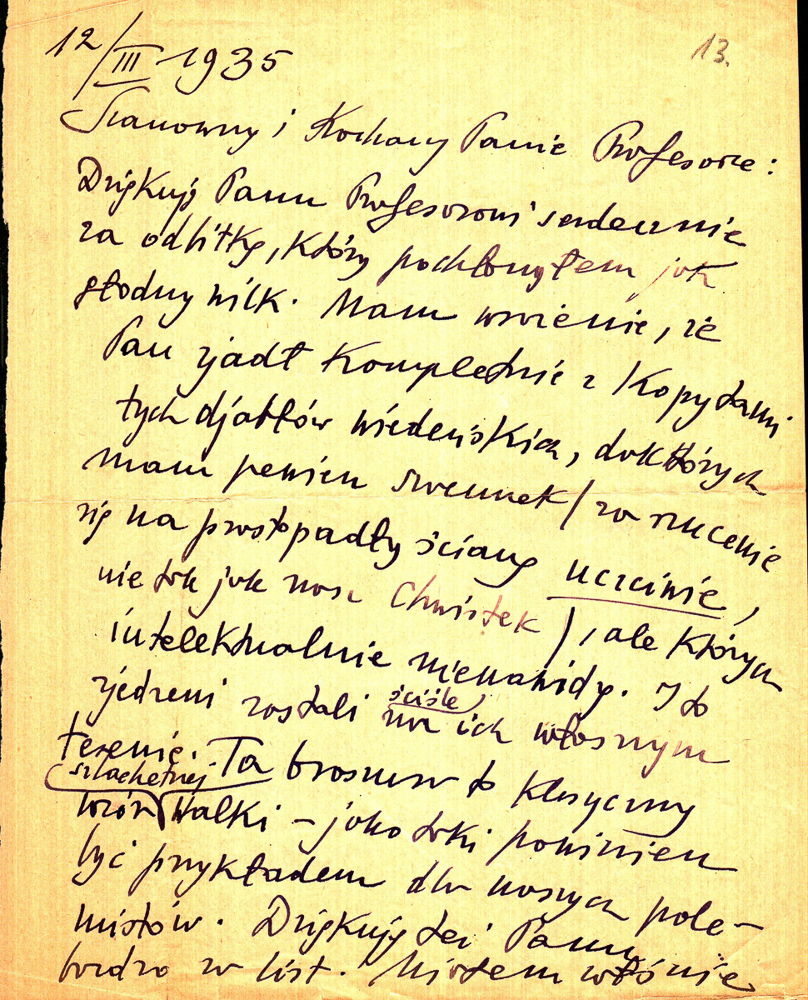 12/III 1935
13.
Szanowny i Kochany Panie Profesorze:
Dziękuję Panu Profesorowi serdecznie
za odbitkę, którą pochłonąłem jak
głodny wilk. Mam wrażenie, że
Pan zjadł kompletnie z kopytami
tych djabłów wiedeńskich, do których
mam pewien szacunek / za rzucenie
się na prostopadłą ścianę uczciwie,
nie tak jak nasz Chwistek /, ale których
intelektualnie nienawidzę. I to
zjedzeni zostali ściśle na ich własnym
terenie. Ta broszura to klasyczny
wzór szlachetnej walki – jako taki powinien
być przykładem dla naszych pole-
mistów. Dziękuję też Panu
bardzo za list. Miałem właśnie